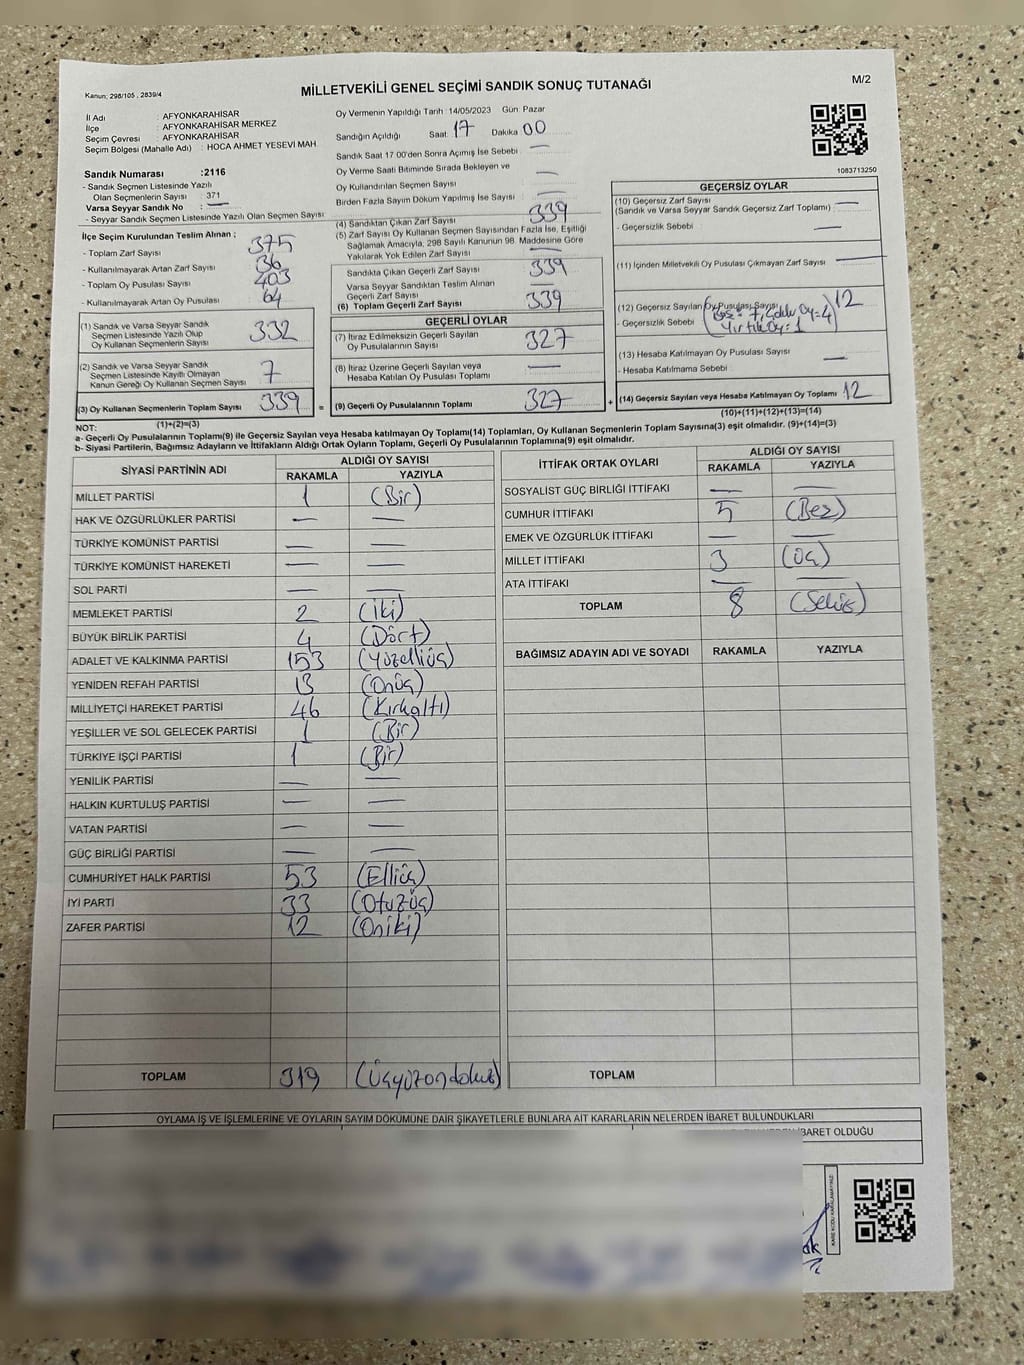 MİLLETVEKİLİ GENEL SEÇİMİ SANDIK SONUÇ TUTANAĞI
M/2
Kanun; 298/105 , 2839/4
İl Adı : AFYONKARAHİSAR
İlçe : AFYONKARAHİSAR MERKEZ
Seçim Çevresi : AFYONKARAHİSAR
Seçim Bölgesi (Mahalle Adı) : HOCA AHMET YESEVİ MAH.
Sandık Numarası :2116
- Sandık Seçmen Listesinde Yazılı
Olan Seçmenlerin Sayısı : 371
Varsa Seyyar Sandık No : —
- Seyyar Sandık Seçmen Listesinde Yazılı Olan Seçmen Sayısı
Oy Vermenin Yapıldığı Tarih : 14/05/2023 Gün: Pazar
Sandığın Açıldığı Saat: 17 Dakika 00
Sandık Saat 17:00'den Sonra Açımış İse Sebebi : —
Oy Verme Saati Bitiminde Sırada Bekleyen ve
Oy Kullandırılan Seçmen Sayısı : —
Birden Fazla Sayım Döküm Yapılmış İse Sayısı : —
1083713250
İlçe Seçim Kurulundan Teslim Alınan ;
- Toplam Zarf Sayısı : 375
- Kullanılmayarak Artan Zarf Sayısı : 36
- Toplam Oy Pusulası Sayısı : 403
- Kullanılmayarak Artan Oy Pusulası : 64
(1) Sandık ve Varsa Seyyar Sandık
Seçmen Listesinde Yazılı Olup
Oy Kullanan Seçmenlerin Sayısı : 332
(2) Sandık ve Varsa Seyyar Sandık
Seçmen Listesinde Kayıtlı Olmayan
Kanun Gereği Oy Kullanan Seçmen Sayısı : 7
(3) Oy Kullanan Seçmenlerin Toplam Sayısı : 339 =
(1)+(2)=(3)
(4) Sandıktan Çıkan Zarf Sayısı : 339
(5) Zarf Sayısı Oy Kullanan Seçmen Sayısından Fazla İse, Eşitliği
Sağlamak Amacıyla, 298 Sayılı Kanunun 98. Maddesine Göre
Yakılarak Yok Edilen Zarf Sayısı : —
Sandıkta Çıkan Geçerli Zarf Sayısı : 339
Varsa Seyyar Sandıktan Teslim Alınan
Geçerli Zarf Sayısı : —
(6) Toplam Geçerli Zarf Sayısı : 339
GEÇERLİ OYLAR
(7) İtiraz Edilmeksizin Geçerli Sayılan
Oy Pusulalarının Sayısı : 327
(8) İtiraz Üzerine Geçerli Sayılan veya
Hesaba Katılan Oy Pusulası Toplamı : —
(9) Geçerli Oy Pusulalarının Toplamı : 327 +
GEÇERSİZ OYLAR
(10) Geçersiz Zarf Sayısı : —
(Sandık ve Varsa Seyyar Sandık Geçersiz Zarf Toplamı)
- Geçersizlik Sebebi : —
(11) İçinden Milletvekili Oy Pusulası Çıkmayan Zarf Sayısı : —
(12) Geçersiz Sayılan Oy Pusulası Sayısı : 12
- Geçersizlik Sebebi : Boş = 7, Oy=4
Yırtık Oy = 1
(13) Hesaba Katılmayan Oy Pusulası Sayısı : —
- Hesaba Katılmama Sebebi
(14) Geçersiz Sayılan veya Hesaba Katılmayan Oy Toplamı : 12
(10)+(11)+(12)+(13)=(14)
NOT:
a- Geçerli Oy Pusulalarının Toplamı(9) ile Geçersiz Sayılan veya Hesaba katılmayan Oy Toplamı(14) Toplamları, Oy Kullanan Seçmenlerin Toplam Sayısına(3) eşit olmalıdır. (9)+(14)=(3)
b- Siyasi Partilerin, Bağımsız Adayların ve İttifakların Aldığı Ortak Oyların Toplamı, Geçerli Oy Pusulalarının Toplamına(9) eşit olmalıdır.
SİYASİ PARTİNİN ADI
ALDIĞI OY SAYISI
RAKAMLA YAZIYLA
MİLLET PARTİSİ 1 (Bir)
HAK VE ÖZGÜRLÜKLER PARTİSİ — —
TÜRKİYE KOMÜNİST PARTİSİ — —
TÜRKİYE KOMÜNİST HAREKETİ — —
SOL PARTİ — —
MEMLEKET PARTİSİ 2 (İki)
BÜYÜK BİRLİK PARTİSİ 4 (Dört)
ADALET VE KALKINMA PARTİSİ 153 (Yüzelliüç)
YENİDEN REFAH PARTİSİ 13 (Onüç)
MİLLİYETÇİ HAREKET PARTİSİ 46 (Kırkaltı)
YEŞİLLER VE SOL GELECEK PARTİSİ 1 (Bir)
TÜRKİYE İŞÇİ PARTİSİ 1 (Bir)
YENİLİK PARTİSİ — —
HALKIN KURTULUŞ PARTİSİ — —
VATAN PARTİSİ — —
GÜÇ BİRLİĞİ PARTİSİ — —
CUMHURİYET HALK PARTİSİ 53 (Elliüç)
İYİ PARTİ 33 (Otuzüç)
ZAFER PARTİSİ 12 (Oniki)
TOPLAM 319 (Üçyüzondokuz)
İTTİFAK ORTAK OYLARI
ALDIĞI OY SAYISI
RAKAMLA YAZIYLA
SOSYALİST GÜÇ BİRLİĞİ İTTİFAKI — —
CUMHUR İTTİFAKI 5 (Beş)
EMEK VE ÖZGÜRLÜK İTTİFAKI — —
MİLLET İTTİFAKI 3 (Üç)
ATA İTTİFAKI — —
TOPLAM 8 (Sekiz)
BAĞIMSIZ ADAYIN ADI VE SOYADI RAKAMLA YAZIYLA
TOPLAM
OYLAMA İŞ VE İŞLEMLERİNE VE OYLARIN SAYIM DÖKÜMÜNE DAİR ŞİKAYETLERLE BUNLARA AİT KARARLARIN NELERDEN İBARET BULUNDUKLARI
İBARET OLDUĞU
KARE KODU KARALAMAYINIZ